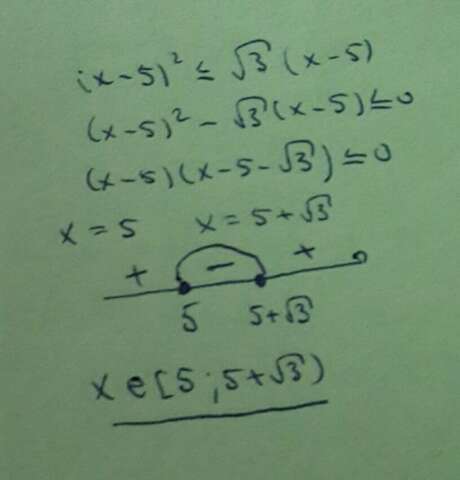 (x-5)² ≤ √3 (x-5)
(x-5)² - √3 (x-5) ≤ 0
(x-5)(x-5-√3) ≤ 0
x = 5 x = 5+√3
+ - +
5 5+√3
x ∈ [5 ; 5+√3)